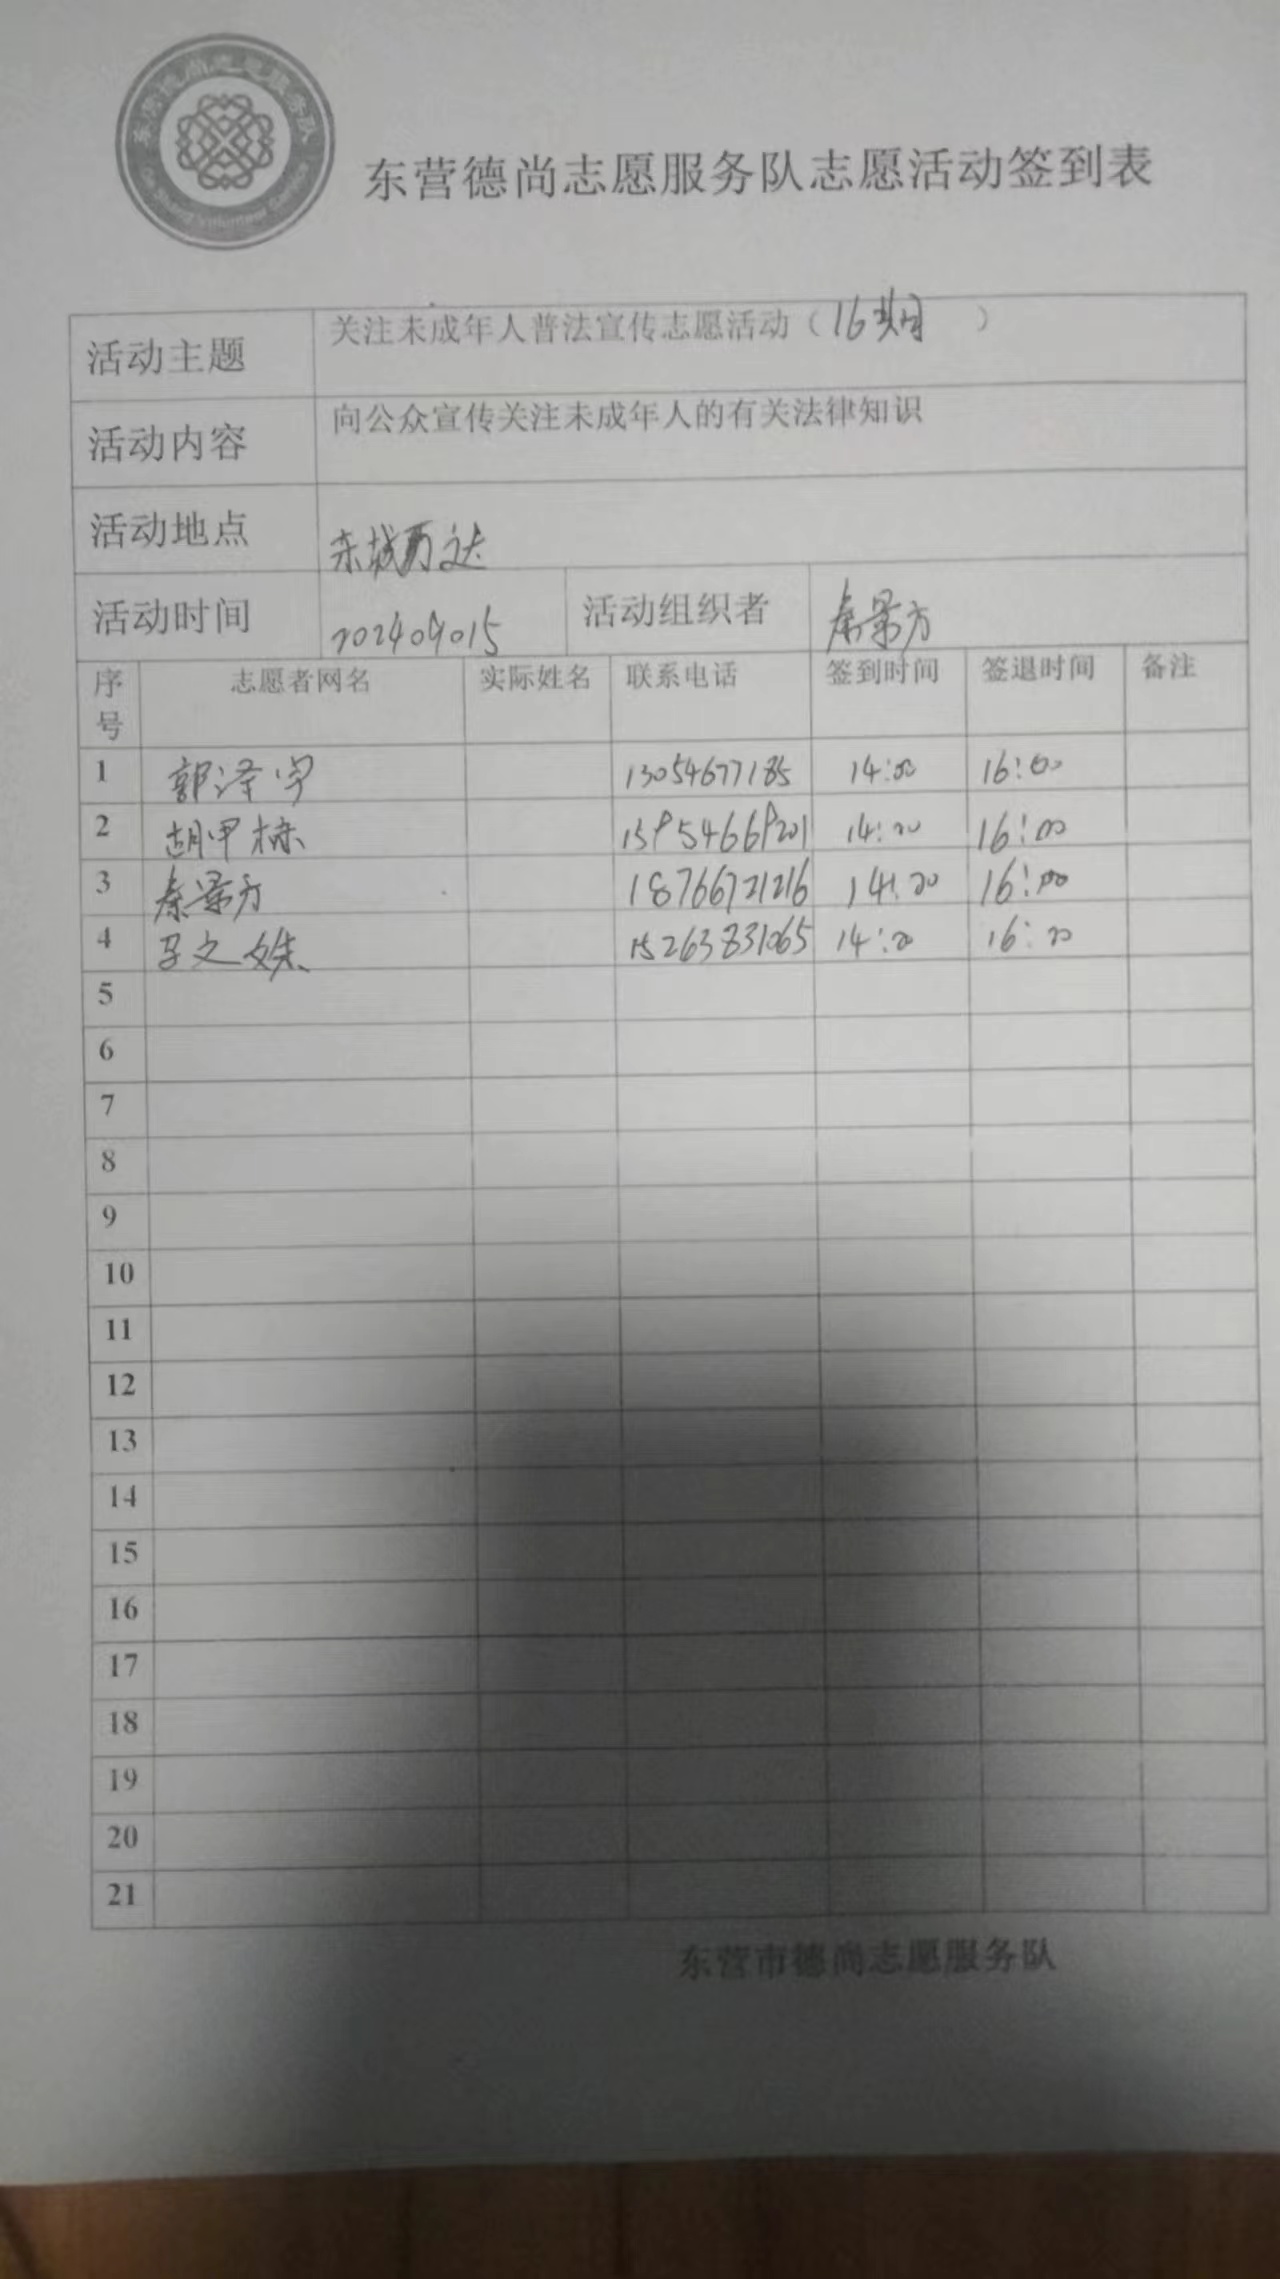 东营德尚志愿服务队
De Shang Volunteer Service
东营德尚志愿服务队志愿活动签到表
活动主题 关注未成年人普法宣传志愿活动（16期 ）
活动内容 向公众宣传关注未成年人的有关法律知识
活动地点 东城万达
活动时间 202409015 活动组织者 秦景方
序号 志愿者网名 实际姓名 联系电话 签到时间 签退时间 备注
1 郭泽宇 13054677185 14:00 16:00
2 胡甲栋 14:00 16:00
3 秦景方 18766721216 14:00 16:00
4 文姝 15263831065 14:00 16:00
5
6
7
8
9
10
11
12
13
14
15
16
17
18
19
20
21
东营市德尚志愿服务队